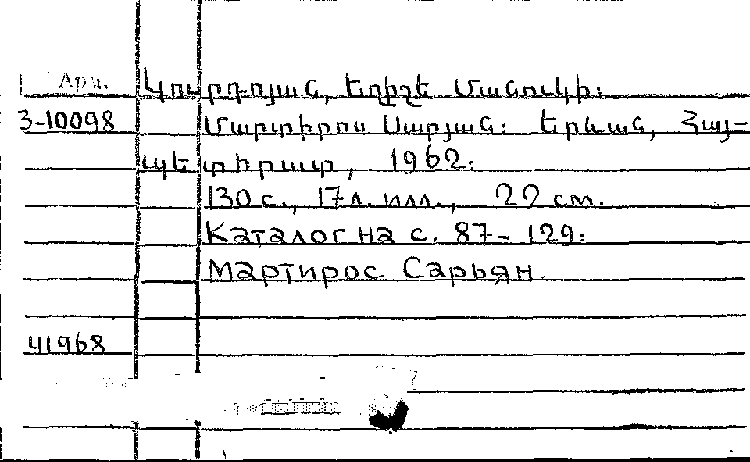 Арм. Կուրդոյան, Եղիշե Մանուկի:
3-10098 Մարտիրոս Սարյան: Երևան, Հայ-
պետհրատ, 1962:
130 с., 17 л. илл., 22 см.
Каталог на с. 87-129:
Мартирос Сарьян
41968